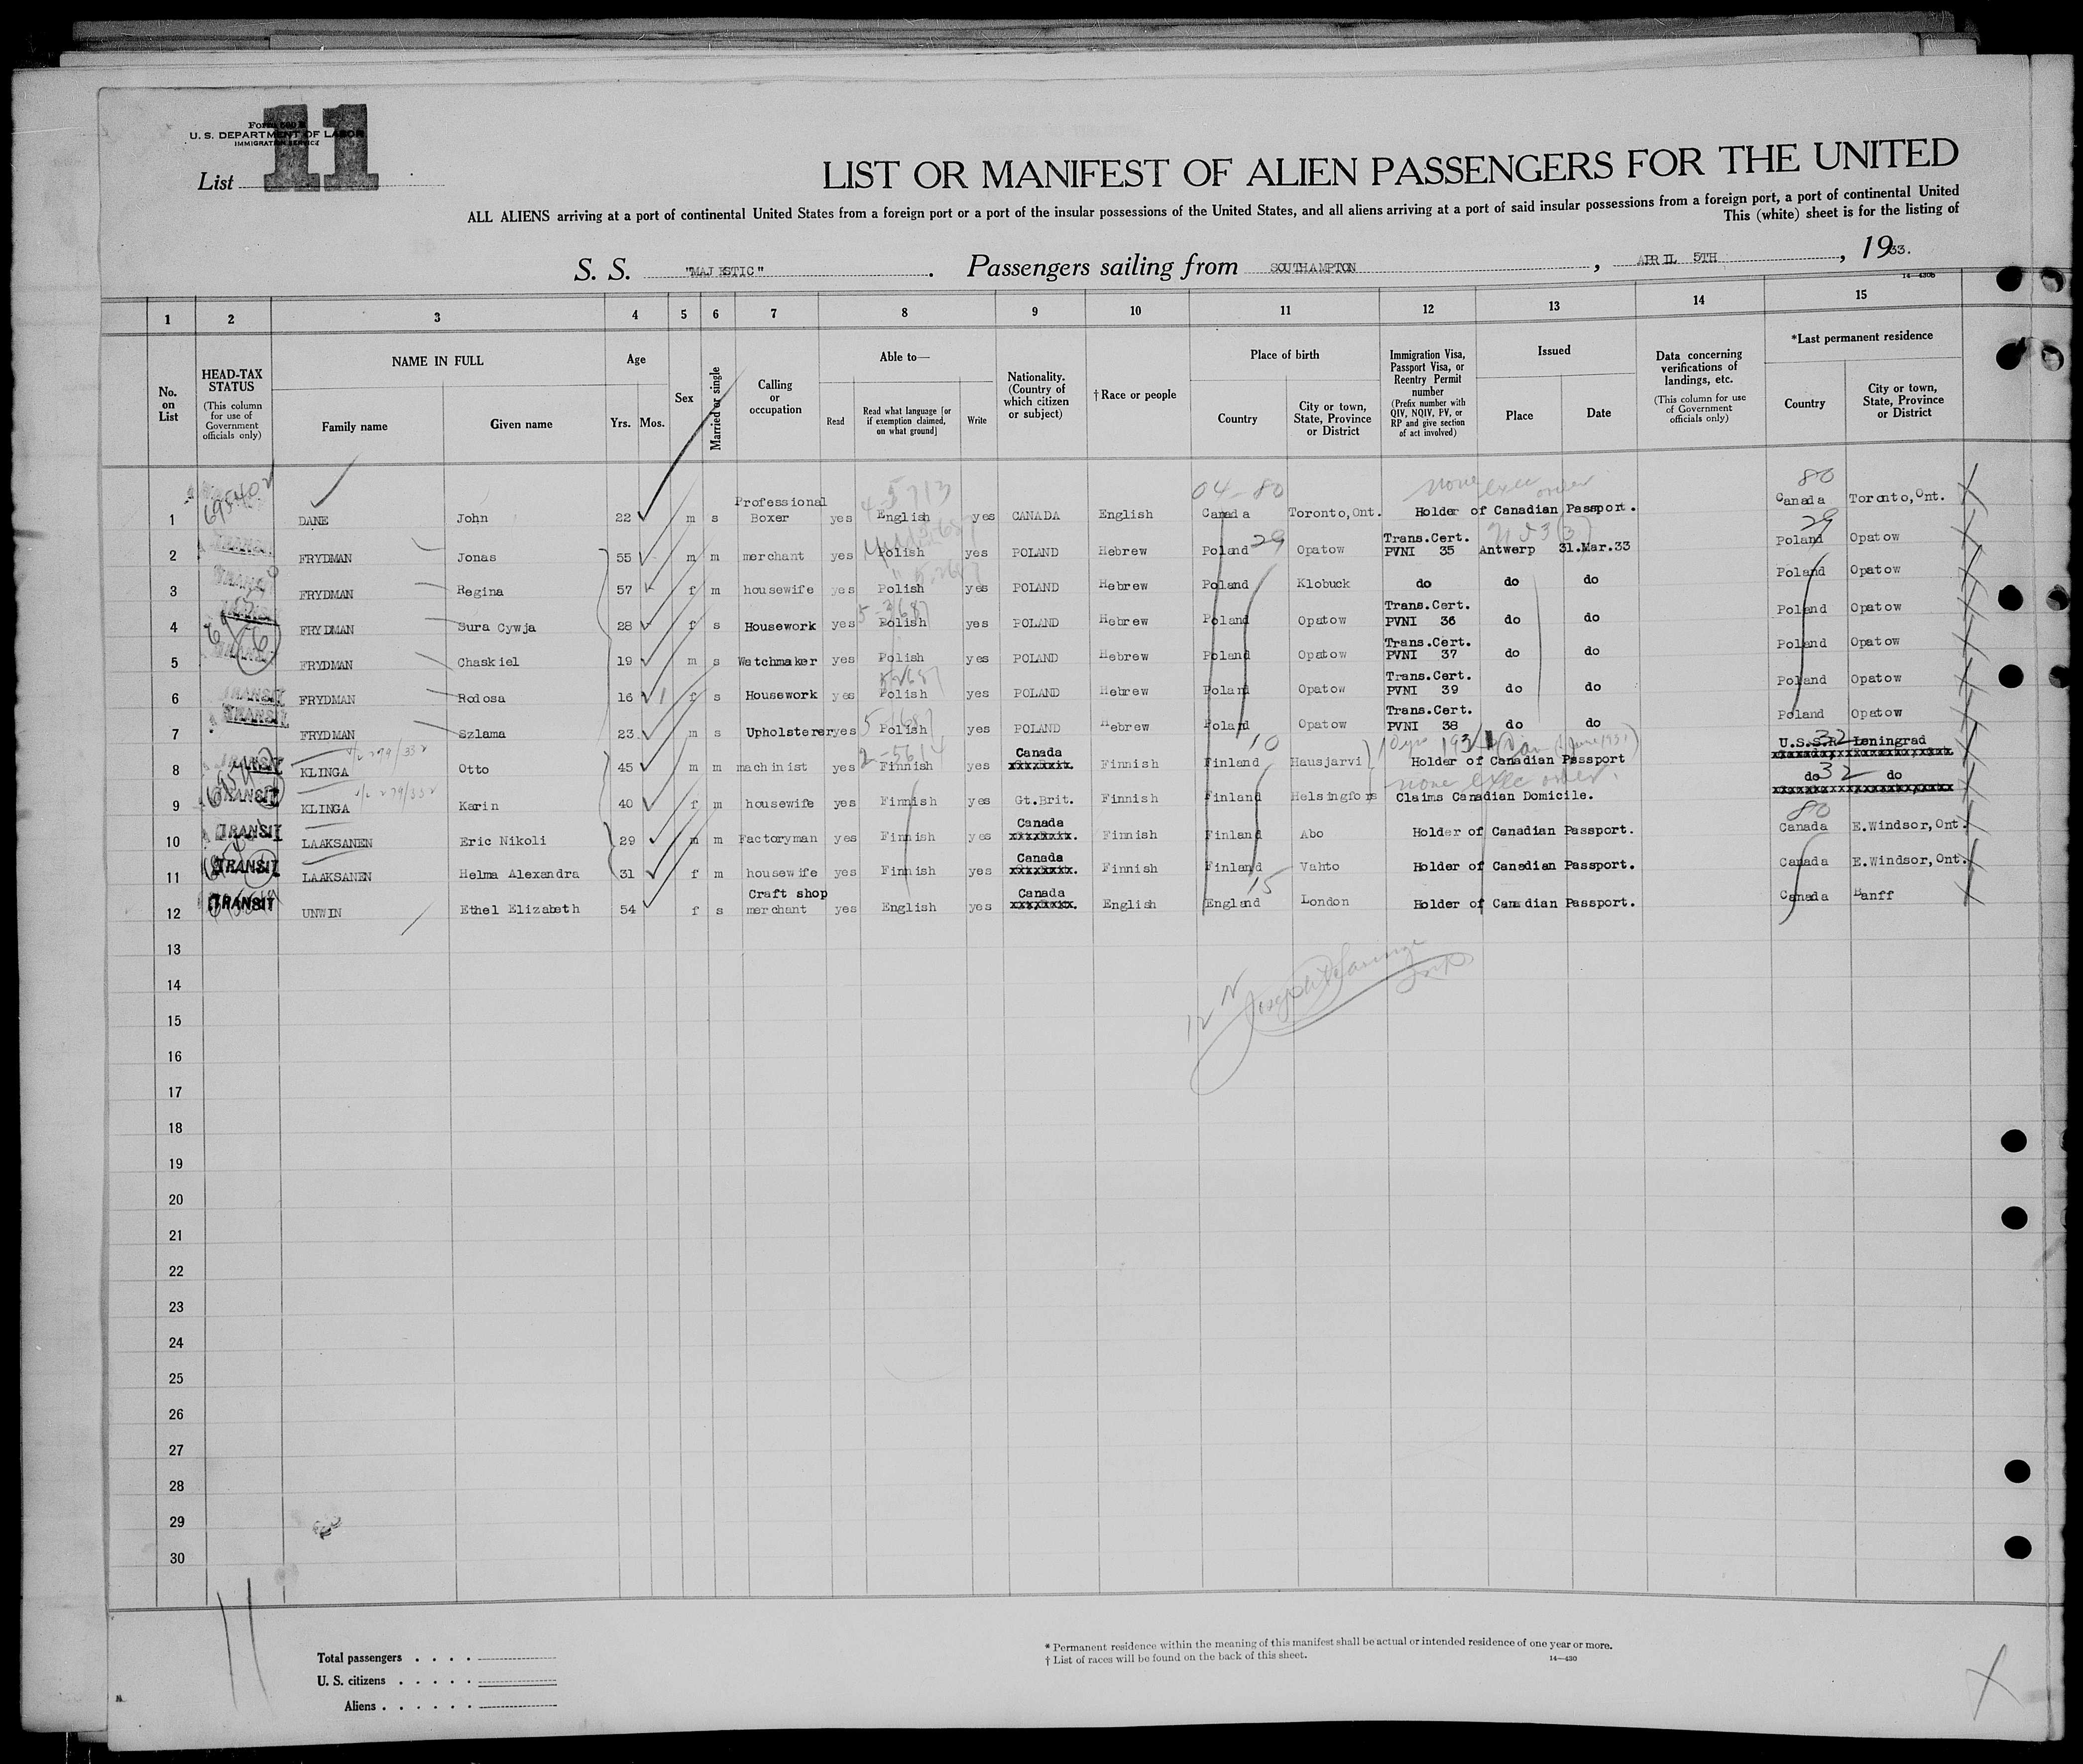 Form 500 B
U. S. DEPARTMENT OF LABOR
IMMIGRATION SERVICE
List 11
LIST OR MANIFEST OF ALIEN PASSENGERS FOR THE UNITED
ALL ALIENS arriving at a port of continental United States from a foreign port or a port of the insular possessions of the United States, and all aliens arriving at a port of said insular possessions from a foreign port, a port of continental United
This (white) sheet is for the listing of
S. S. "MAJESTIC" . Passengers sailing from SOUTHAMPTON , APRIL 5TH , 1933.
14—430B
1 2 3 4 5 6 7 8 9 10 11 12 13 14 15
No. on List
HEAD-TAX STATUS (This column for use of Government officials only)
NAME IN FULL Family name Given name
Age Yrs. Mos.
Sex
Married or single
Calling or occupation
Able to— Read Read what language [or if exemption claimed, on what ground] Write
Nationality. (Country of which citizen or subject)
†Race or people
Place of birth Country City or town, State, Province or District
Immigration Visa, Passport Visa, or Reentry Permit number (Prefix number with QIV, NQIV, PV, or RP and give section of act involved)
Issued Place Date
Data concerning verifications of landings, etc. (This column for use of Government officials only)
*Last permanent residence Country City or town, State, Province or District
4-5713 04-80 none exec order 80
1 DANE John 22 m s Professional Boxer yes English yes CANADA English Canada Toronto,Ont. Holder of Canadian Passport. Canada Toronto,Ont.
29 29
2 TRANSIT FRYDMAN Jonas 55 m m merchant yes Polish yes POLAND Hebrew Poland Opatow Trans.Cert. PVNI 35 Antwerp 31.Mar.33 Poland Opatow
3 TRANSIT FRYDMAN Regina 57 f m housewife yes Polish yes POLAND Hebrew Poland Klobuck do do do Poland Opatow
4 TRANSIT FRYDMAN Sura Cywja 28 f s Housework yes Polish yes POLAND Hebrew Poland Opatow Trans.Cert. PVNI 36 do do Poland Opatow
5 TRANSIT FRYDMAN Chaskiel 19 m s Watchmaker yes Polish yes POLAND Hebrew Poland Opatow Trans.Cert. PVNI 37 do do Poland Opatow
6 TRANSIT FRYDMAN Rodosa 16 f s Housework yes Polish yes POLAND Hebrew Poland Opatow Trans.Cert. PVNI 39 do do Poland Opatow
7 TRANSIT FRYDMAN Szlama 23 m s Upholsterer yes Polish yes POLAND Hebrew Poland Opatow Trans.Cert. PVNI 38 do do Poland Opatow
2-5614 10 32
8 TRANSIT KLINGA Otto 45 m m machinist yes Finnish yes Canada Finnish Finland Hausjarvi Holder of Canadian Passport U.S.S.R Leningrad
none exec order. 32
9 TRANSIT KLINGA Karin 40 f m housewife yes Finnish yes Gt.Brit. Finnish Finland Helsingfors Claims Canadian Domicile. do do
80
10 TRANSIT LAAKSANEN Eric Nikoli 29 m m Factoryman yes Finnish yes Canada Finnish Finland Abo Holder of Canadian Passport. Canada E.Windsor,Ont.
11 TRANSIT LAAKSANEN Helma Alexandra 31 f m housewife yes Finnish yes Canada Finnish Finland Vahto Holder of Canadian Passport. Canada E.Windsor,Ont.
15
12 TRANSIT UNWIN Ethel Elizabeth 54 f s Craft shop merchant yes English yes Canada English England London Holder of Canadian Passport. Canada Banff
13
14
15
16
17
18
19
20
21
22
23
24
25
26
27
28
29
30
11
Total passengers . . . .
U. S. citizens . . . . .
Aliens . . . . . .
* Permanent residence within the meaning of this manifest shall be actual or intended residence of one year or more.
† List of races will be found on the back of this sheet.
14—430